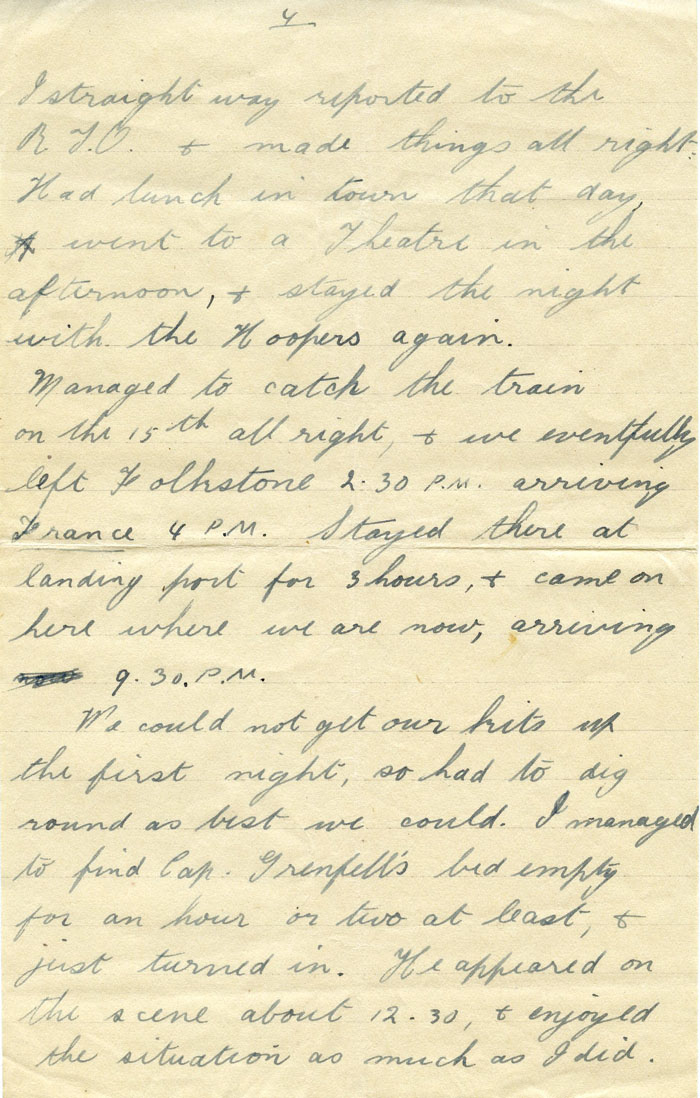 4
I straight way reported to the
R.T.O. & made things all right.
Had lunch in town that day,
& went to a Theatre in the
afternoon, & stayed the night
with the Hoopers again.
Managed to catch the train
on the 15th all right, & we eventfully
left Folkstone 2.30 P.M. arriving
France 4 P.M. Stayed there at
landing port for 3 hours, & came on
here where we are now, arriving
9.30.P.M.
We could not get our kits up
the first night, so had to dig
round as best we could. I managed
to find Cap. Grenfell's bed empty
for an hour or two at least, &
just turned in. He appeared on
the scene about 12.30, & enjoyed
the situation as much as I did.